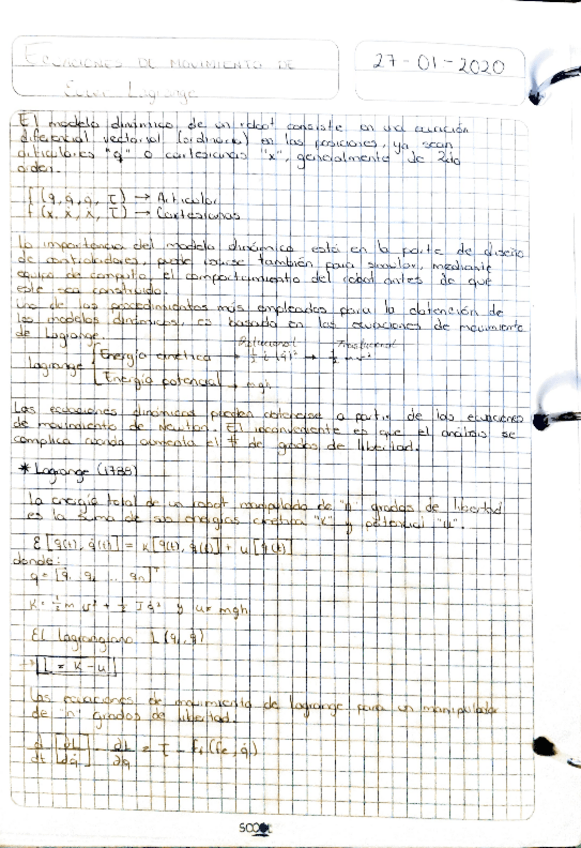 ECUACIONES DE MOVIMIENTO DE
Euler Lagrange
27-01-2020
El modelo dinámico de un robot consiste en una ecuación
diferencial vectorial (ordinaria) en las posiciones, ya sean
articulares "q" o cartesianas "x", generalmente de 2do
orden.
f (q, q̇, q̈, τ) → Articular
f (x, ẋ, ẍ, τ) → Cartesianas
La importancia del modelo dinámico está en la parte de diseño
de controladores, puede también para simular, mediante
equipo de computo, el comportamiento del robot antes de que
este sea construido.
Uno de los procedimientos más empleados para la obtención de
los modelos dinámicos, es basada en las ecuaciones de movimiento
de Lagrange.
Rotacional Traslacional
Lagrange Energía cinética → ½ I (q̇)² → ½ m v²
Energía potencial → mgh
Las ecuaciones dinámicas pueden obtenerse a partir de las ecuaciones
de movimiento de Newton. El inconveniente es que el análisis se
complica cuando aumenta el # de grados de libertad.
* Lagrange (1788)
La energía total de un robot manipulador de "n" grados de libertad
es la suma de sus energías cinética "K" y potencial "U".
E [q(t), q̇(t)] = K [q(t), q̇(t)] + u [q(t)]
donde:
q = [q₁ q₂ ... qn]ᵀ
K = ½ m v² + ½ I q̇² y u = mgh
El lagrangiano L (q, q̇)
L = K - u
Las ecuaciones de movimiento de lagrange para un manipulador
de "n" grados de libertad.
d/dt [∂L/∂q̇] - ∂L/∂q = τ - f (fe, q̇)